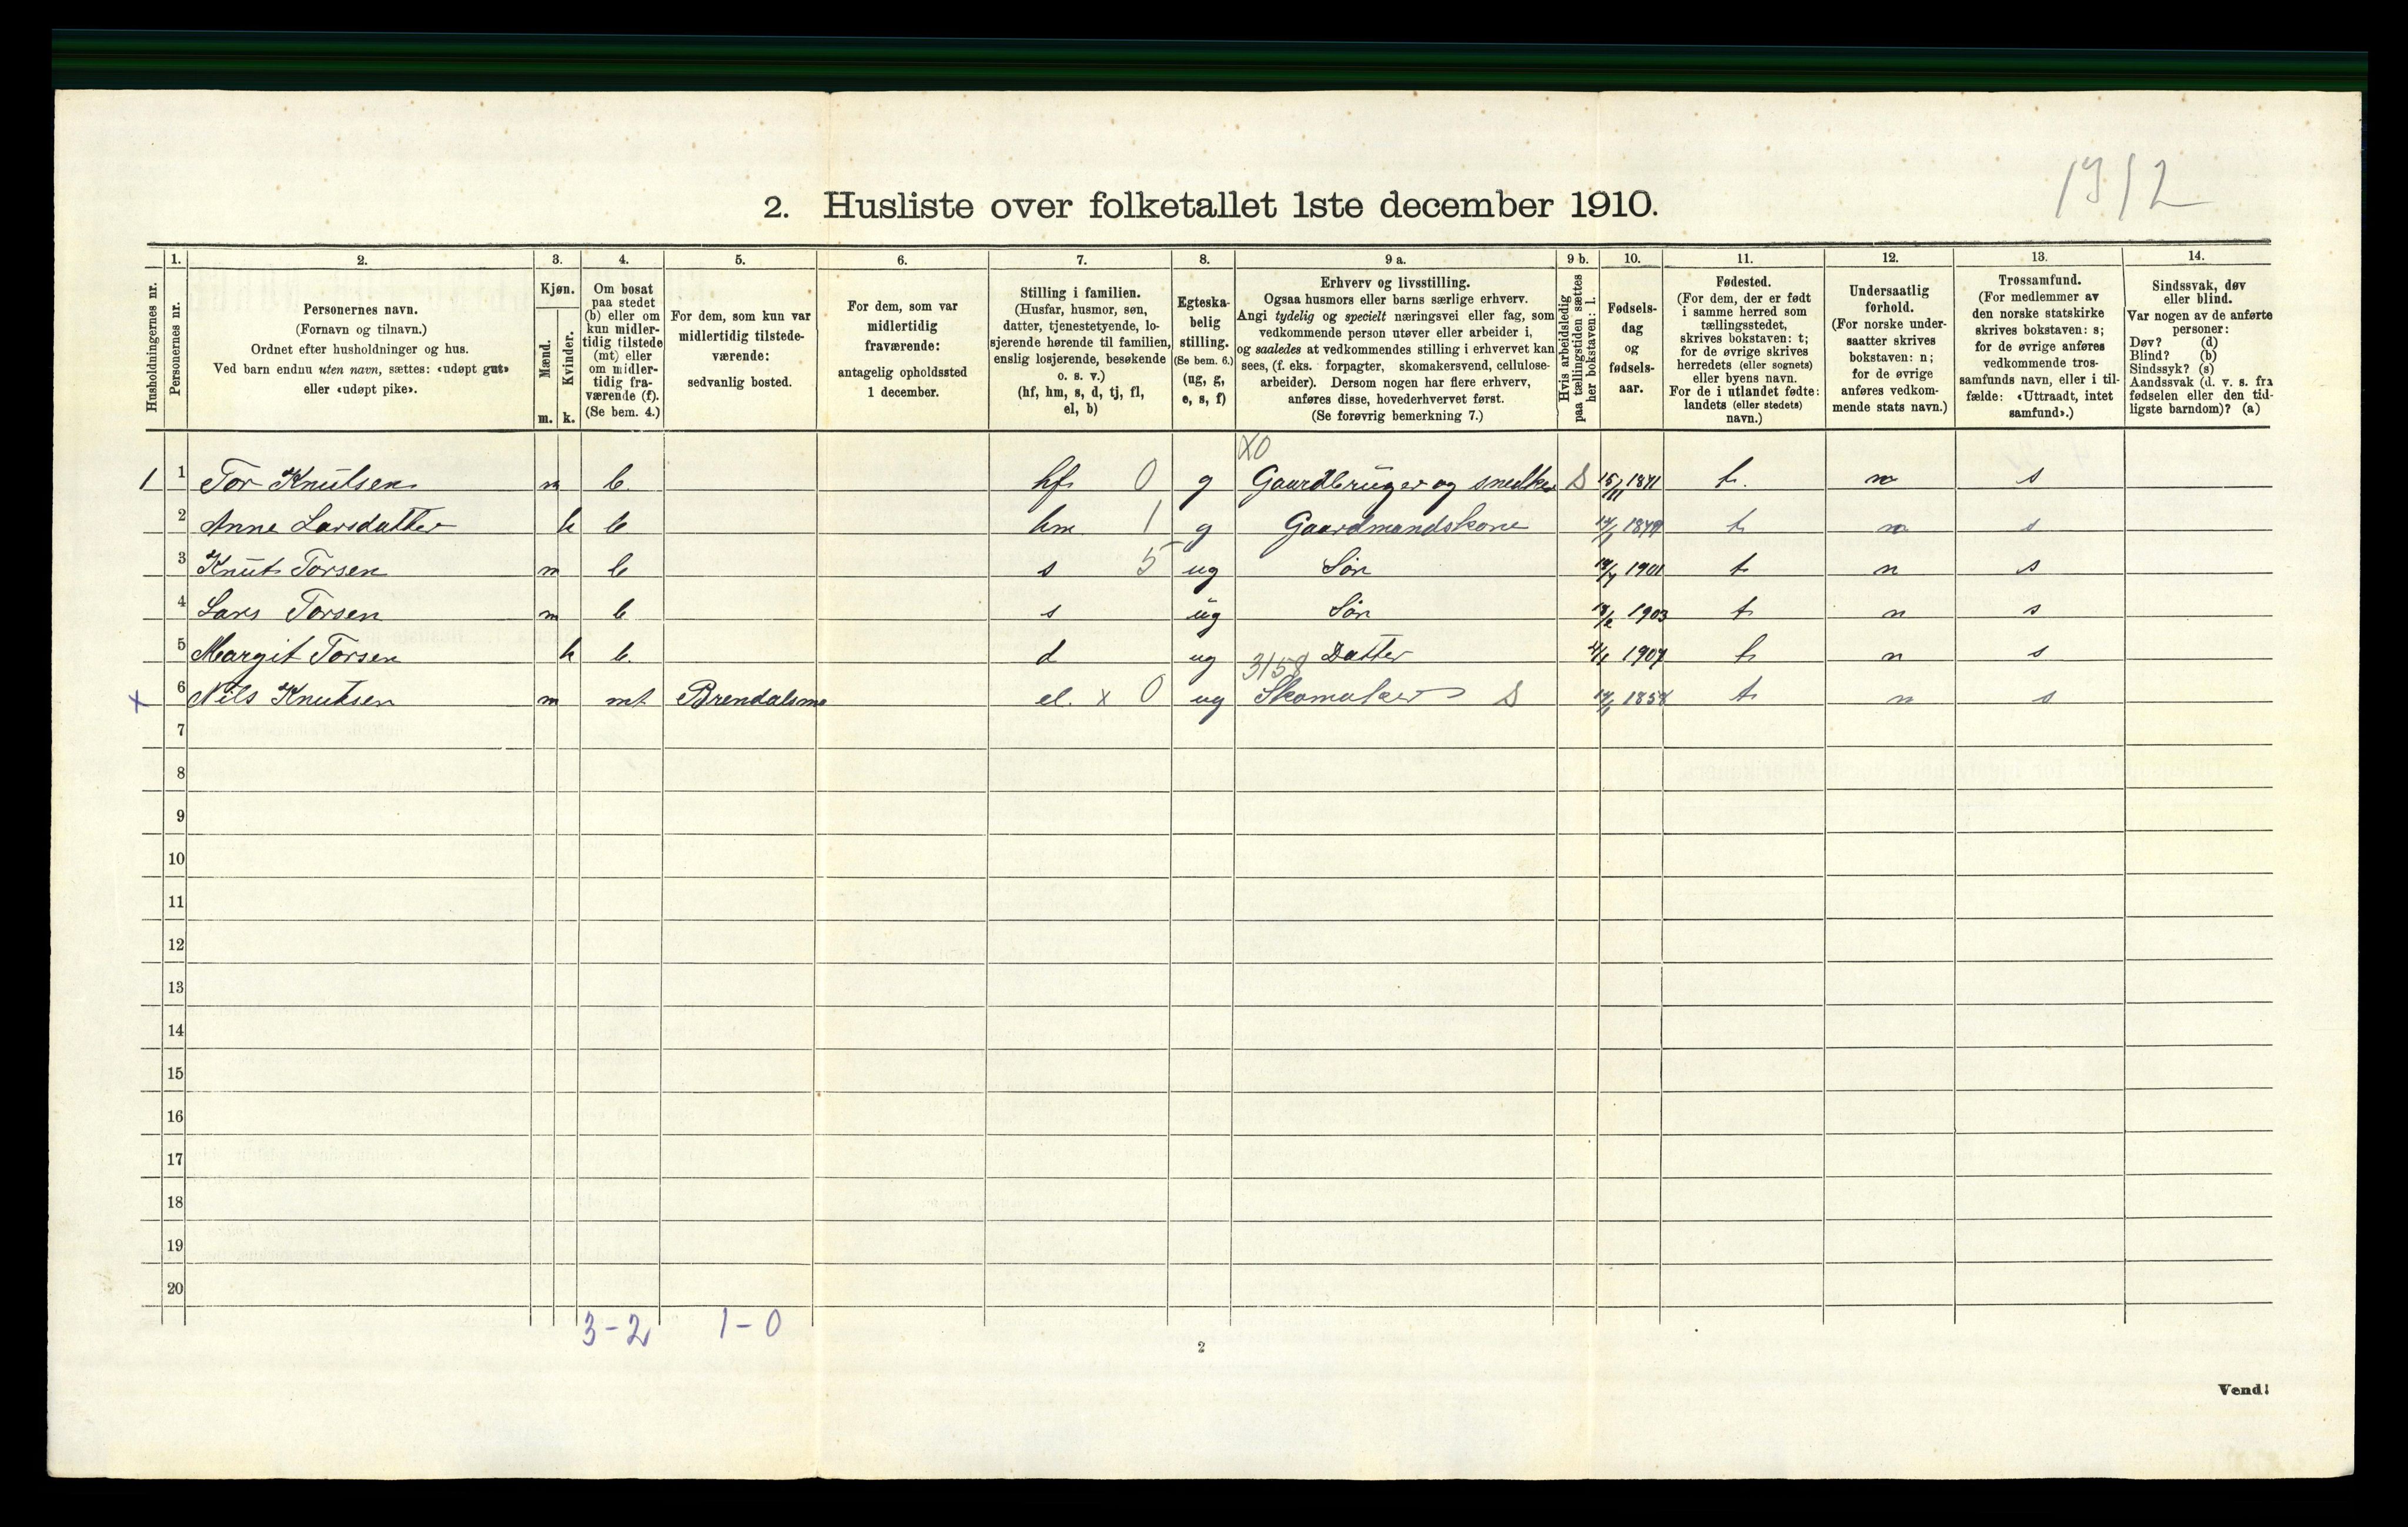 1912
2. Husliste over folketallet 1ste december 1910.
Husholdningernes nr.
1. Personernes nr.
2. Personernes navn.
(Fornavn og tilnavn.)
Ordnet efter husholdninger og hus.
Ved barn endnu uten navn, sættes: «udøpt gut»
eller «udøpt pike».
3. Kjøn.
Mænd. m.
Kvinder. k.
4. Om bosat
paa stedet
(b) eller om
kun midler-
tidig tilstede
(mt) eller
om midler-
tidig fra-
værende (f).
(Se bem. 4.)
5. For dem, som kun var
midlertidig tilstede-
værende:
sedvanlig bosted.
6. For dem, som var
midlertidig
fraværende:
antagelig opholdssted
1 december.
7. Stilling i familien.
(Husfar, husmor, søn,
datter, tjenestetyende, lo-
sjerende hørende til familien,
enslig losjerende, besøkende
o. s. v.)
(hf, hm, s, d, tj, fl,
el, b)
8. Egteska-
belig
stilling.
(Se bem. 6.)
(ug, g,
e, s, f)
9 a. Erhverv og livsstilling.
Ogsaa husmors eller barns særlige erhverv.
Angi tydelig og specielt næringsvei eller fag, som
vedkommende person utøver eller arbeider i,
og saaledes at vedkommendes stilling i erhvervet kan
sees, (f. eks. forpagter, skomakersvend, cellulose-
arbeider). Dersom nogen har flere erhverv,
anføres disse, hovederhvervet først.
(Se forøvrig bemerkning 7.)
9 b. Hvis arbeidsledig
paa tællingstiden sættes
her bokstaven: l.
10. Fødsels-
dag
og
fødsels-
aar.
11. Fødested.
(For dem, der er født
i samme herred som
tællingsstedet,
skrives bokstaven: t;
for de øvrige skrives
herredets (eller sognets)
eller byens navn.
For de i utlandet fødte:
landets (eller stedets)
navn.)
12. Undersaatlig
forhold.
(For norske under-
saatter skrives
bokstaven: n;
for de øvrige
anføres vedkom-
mende stats navn.)
13. Trossamfund.
(For medlemmer av
den norske statskirke
skrives bokstaven: s;
for de øvrige anføres
vedkommende tros-
samfunds navn, eller i til-
fælde: «Uttraadt, intet
samfund».)
14. Sindssvak, døv
eller blind.
Var nogen av de anførte
personer:
Døv? (d)
Blind? (b)
Sindssyk? (s)
Aandssvak (d. v. s. fra
fødselen eller den tid-
ligste barndom)? (a)
X0
1 1 Tor Knutsen m b. hf. 0 g Gaardbruger og snedker S 15/11 1871 t. n s
2 Anne Larsdatter k b hm 1 g Gaardmandskone t n s
3 Knut Torsen m b s 5 ug Søn 1901 t n s
4 Lars Torsen m b s ug Søn 1903 t n s
5 Margit Torsen k b. d ug Datter 1907 t n s
3158
x 6 Nils Knutsen m mt Brendalsmo el. x 0 ug Skomaker S 1858 t n s
7
8
9
10
11
12
13
14
15
16
17
18
19
20
3-2 1-0
2
Vend!